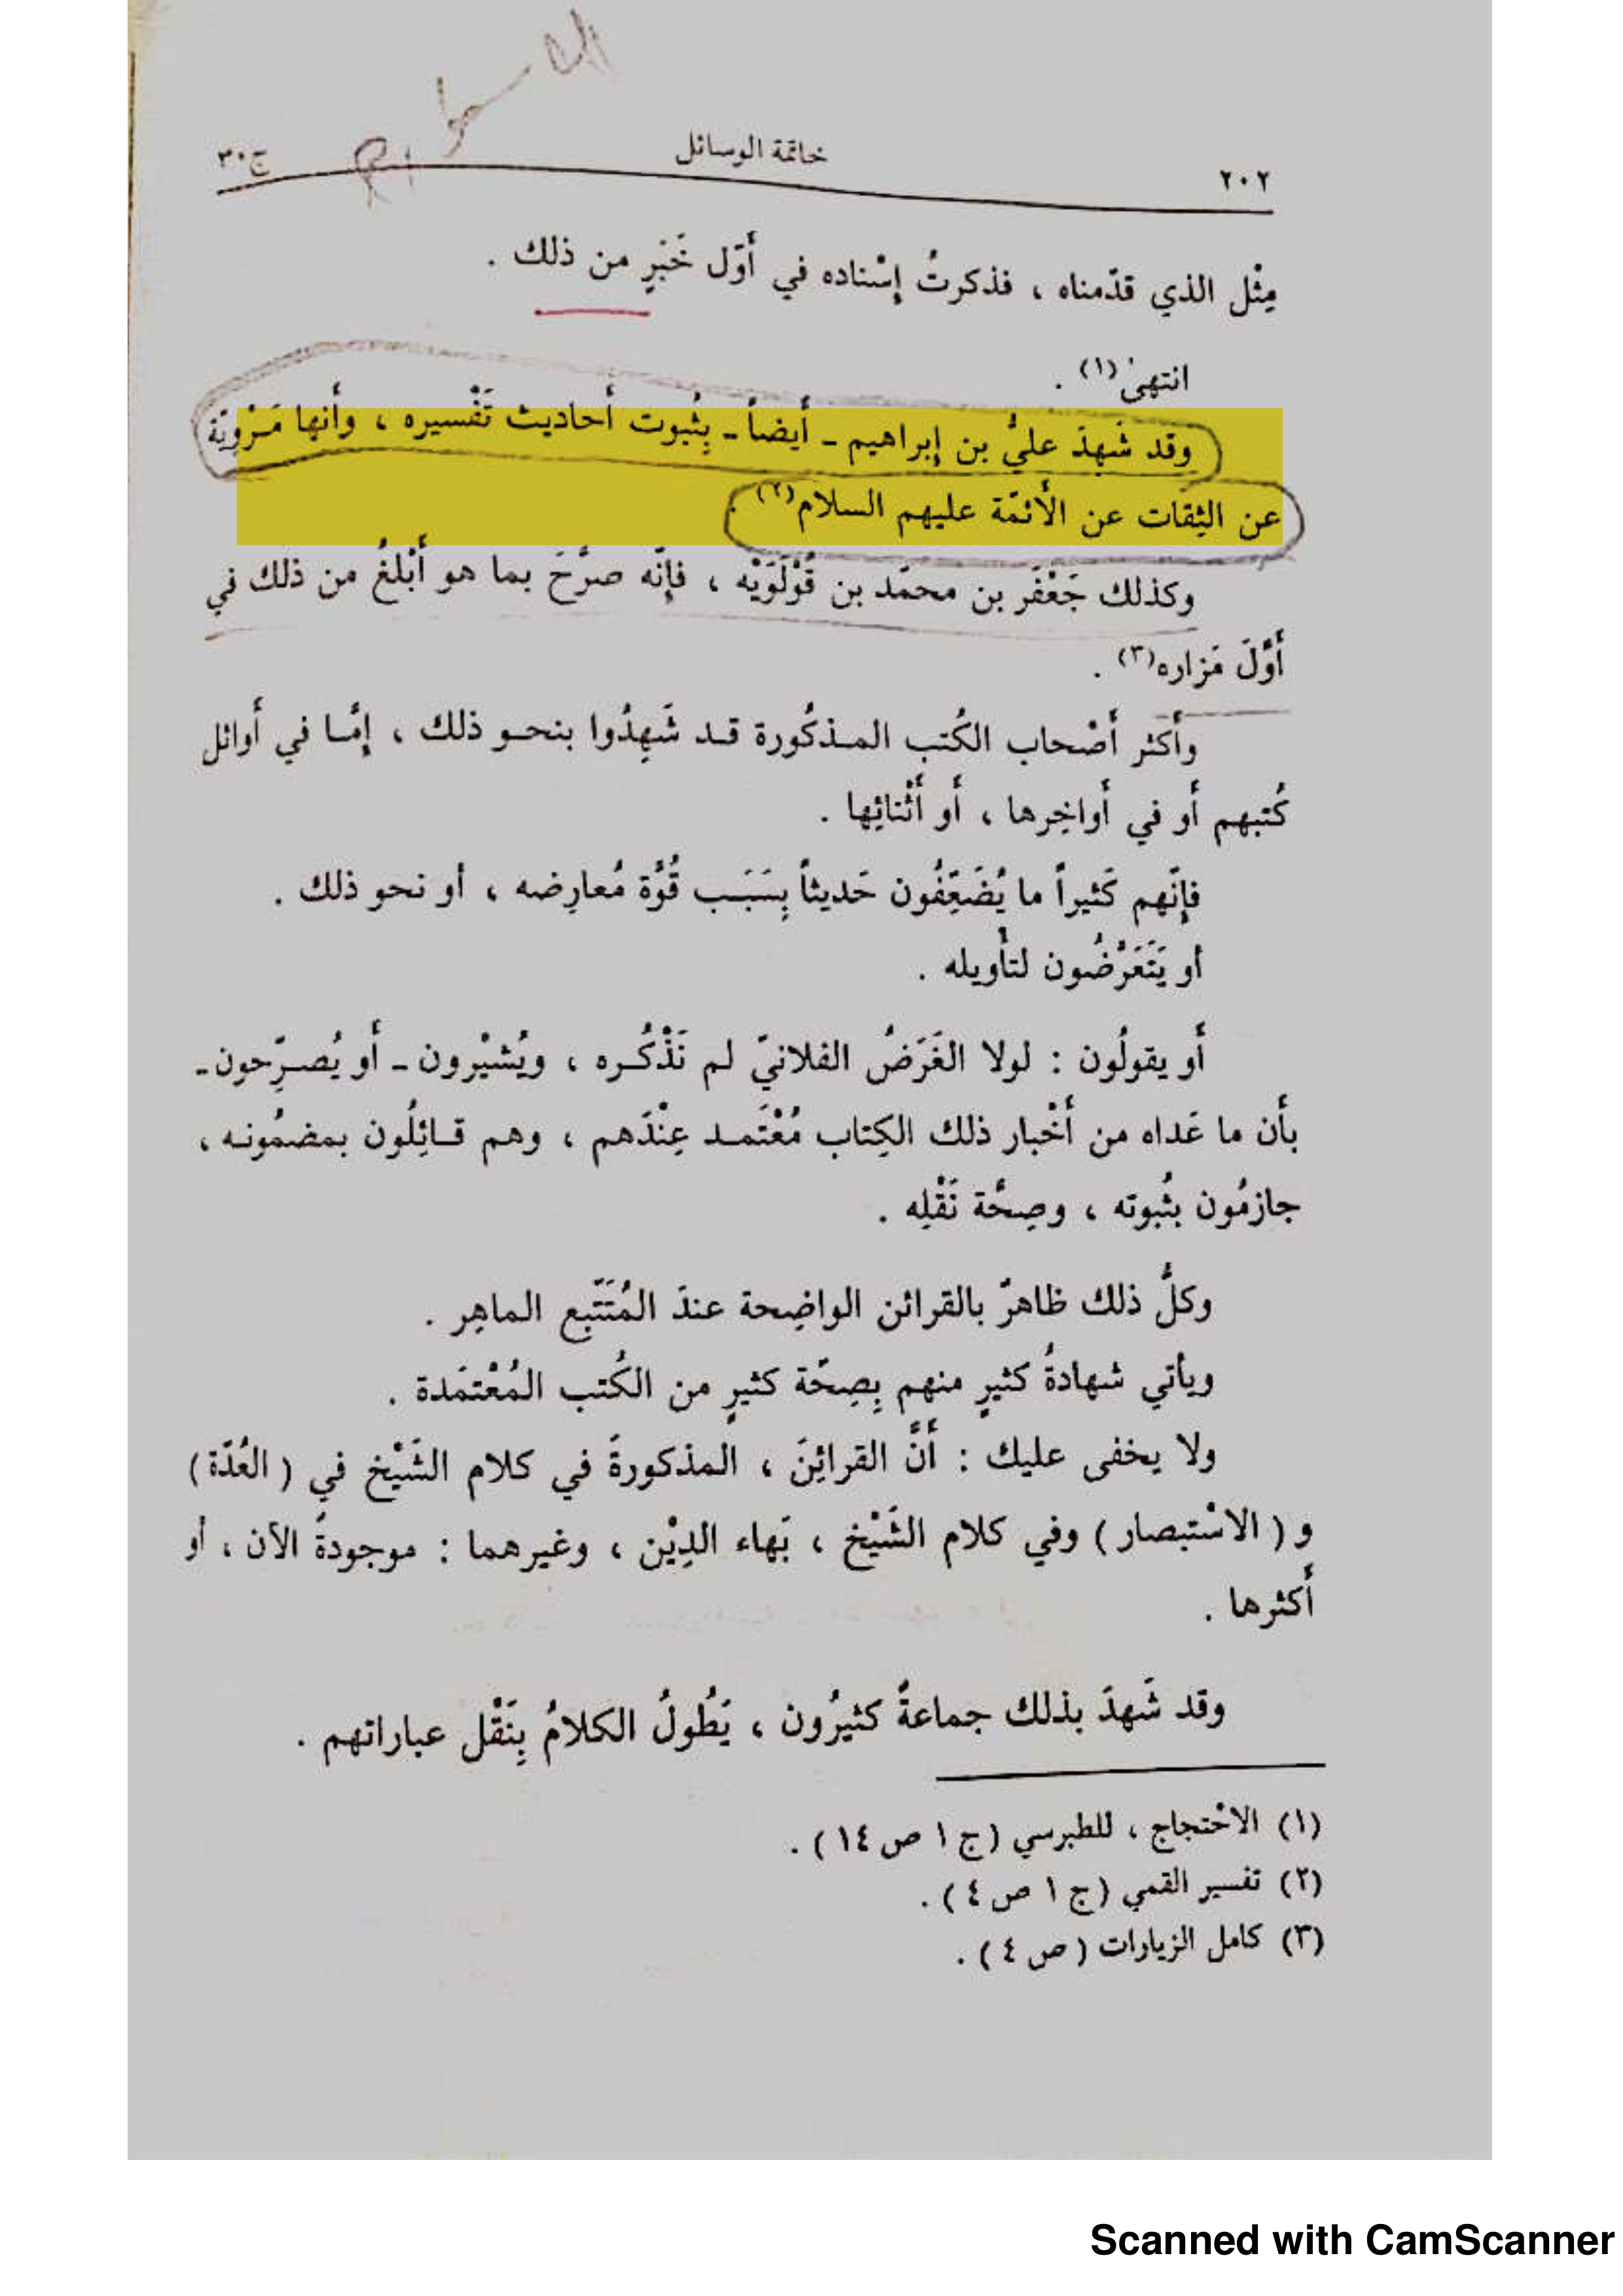 ٢٠٢ خاتمة الوسائل ج٣٠
مِثْل الذي قدّمناه ، فذكرتُ إسْناده في أَوّل خَبَرٍ من ذلك .
انتهىٰ (١) .
وقد شَهِدَ عليُّ بن إبراهيم ـ أيضاً ـ بِثُبوت أَحاديث تَفْسيره ، وأَنها مَرْويّة
عن الثِقات عن الأَئمّة عليهم السلام (٢) .
وكذلك جَعْفَر بن محمّد بن قُوْلَوَيْه ، فإنّه صرَّحَ بما هو أَبْلغُ من ذلك في
أَوَّلَ مَزاره (٣) .
وأَكثر أَصْحاب الكُتب المـذكُورة قـد شَهِدُوا بنحـو ذلك ، إمَّـا في أَوائل
كُتبهم أَو في أَواخِرها ، أَو أَثْنائِها .
فإنّهم كَثيراً ما يُضَعِّفُون حَديثاً بِسَبَـب قُوَّة مُعارِضه ، أو نحو ذلك .
أو يَتَعَرْضُون لتأويله .
أَو يقولُون : لولا الغَرَضُ الفلانيّ لم نَذْكُـره ، ويُشيْرون ـ أَو يُصـرِّحون ـ
بأَن ما عَداه من أَخْبار ذلك الكِتاب مُعْتَمـد عِنْدَهم ، وهم قـائِلُون بمضمُونـه ،
جازمُون بثُبوته ، وصِحَّة نَقْلِه .
وكلُّ ذلك ظاهرٌ بالقرائن الواضِحة عندَ المُتَتّبع الماهِر .
ويأتي شهادةُ كثيرٍ منهم بِصِحّة كثيرٍ من الكُتب المُعْتمَدة .
ولا يخفى عليك : أَنَّ القرائِنَ ، المذكورةَ في كلام الشَيْخ في ( العُدّة )
و ( الاسْتبصار ) وفي كلام الشَيْخ ، بَهاء الدِيْن ، وغيرهما : موجودةٌ الآن ، أو
أَكثرها .
وقد شَهِدَ بذلك جماعةٌ كثيرُون ، يَطُولُ الكلامُ بِنَقْل عباراتهم .
(١) الاحْتجاج ، للطبرسي (ج ١ ص ١٤ ) .
(٢) تفسير القمي (ج ١ ص ٤ ) .
(٣) كامل الزيارات ( ص ٤ ) .
Scanned with CamScanner